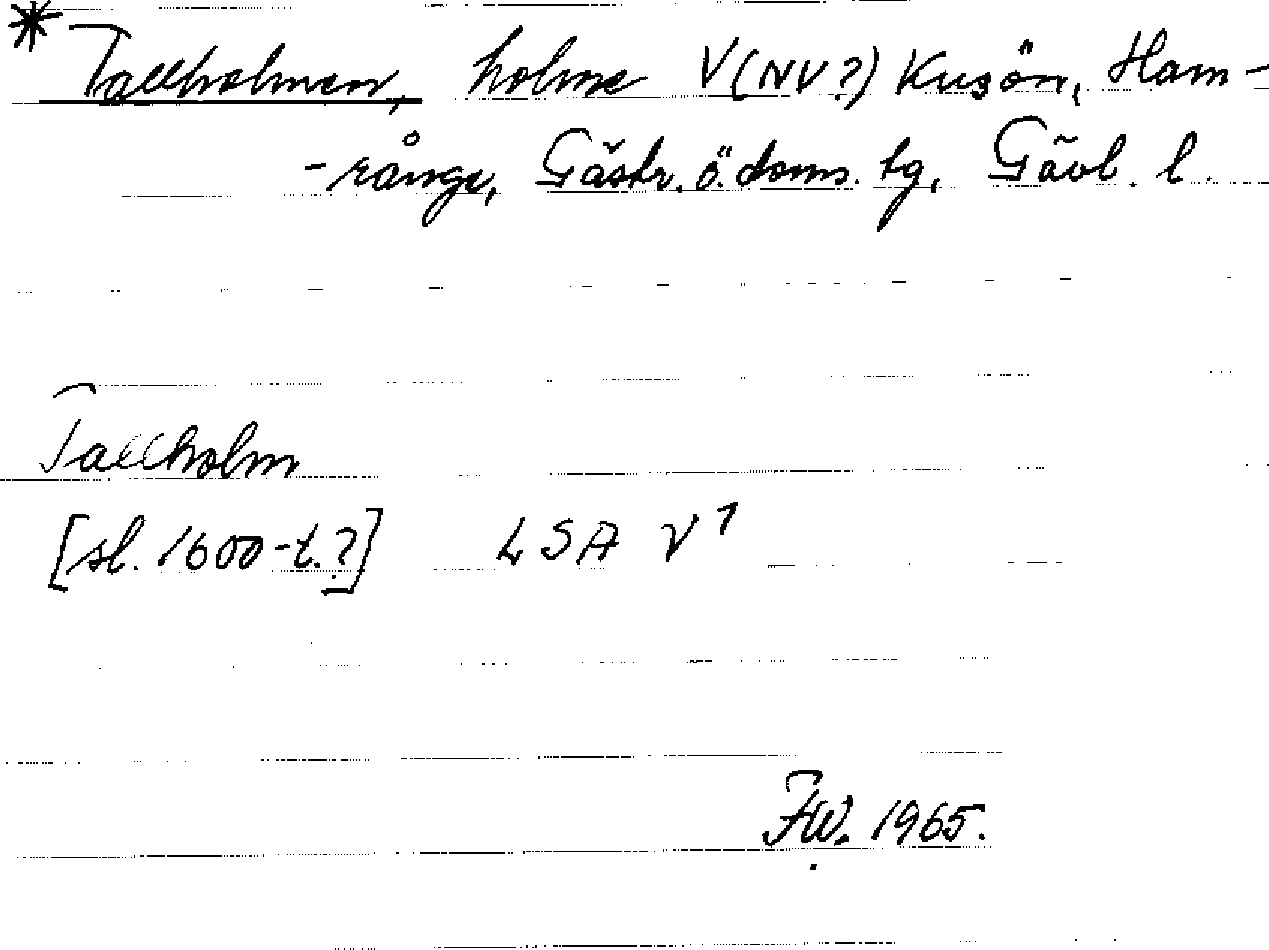 * Tallholmen, holme V (NV?) Kusön, Ham-
-rånge, Gästr. ö. doms. tg, Gävl. l.
Tallholm
[sl. 1600-t.?] LSA V 1
FW. 1965.